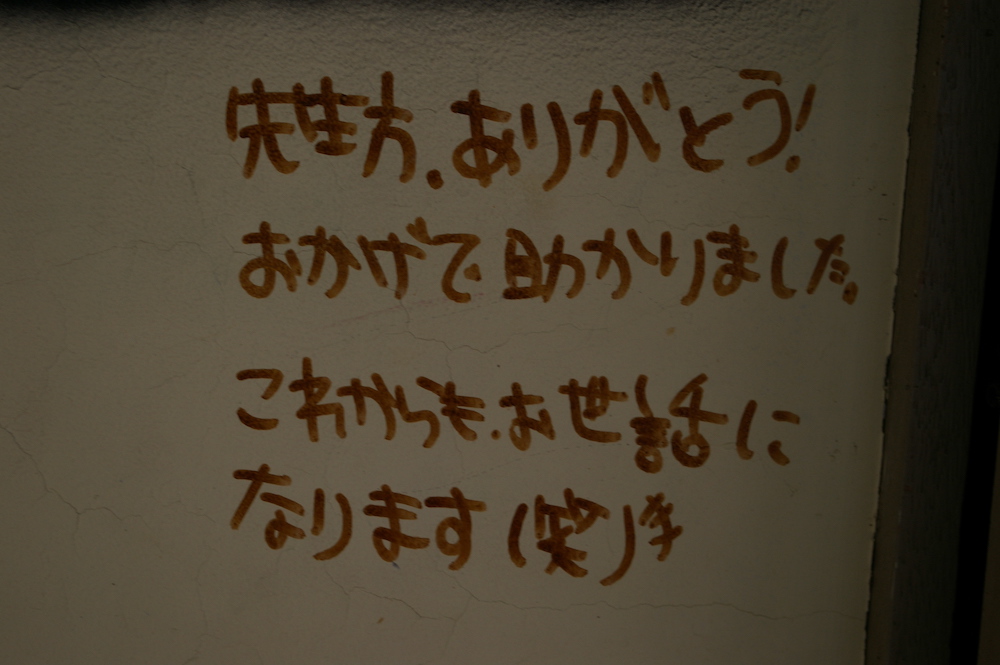 先生方.ありがとう!
おかげで助かりました。
これからも.お世話に
なります(笑)